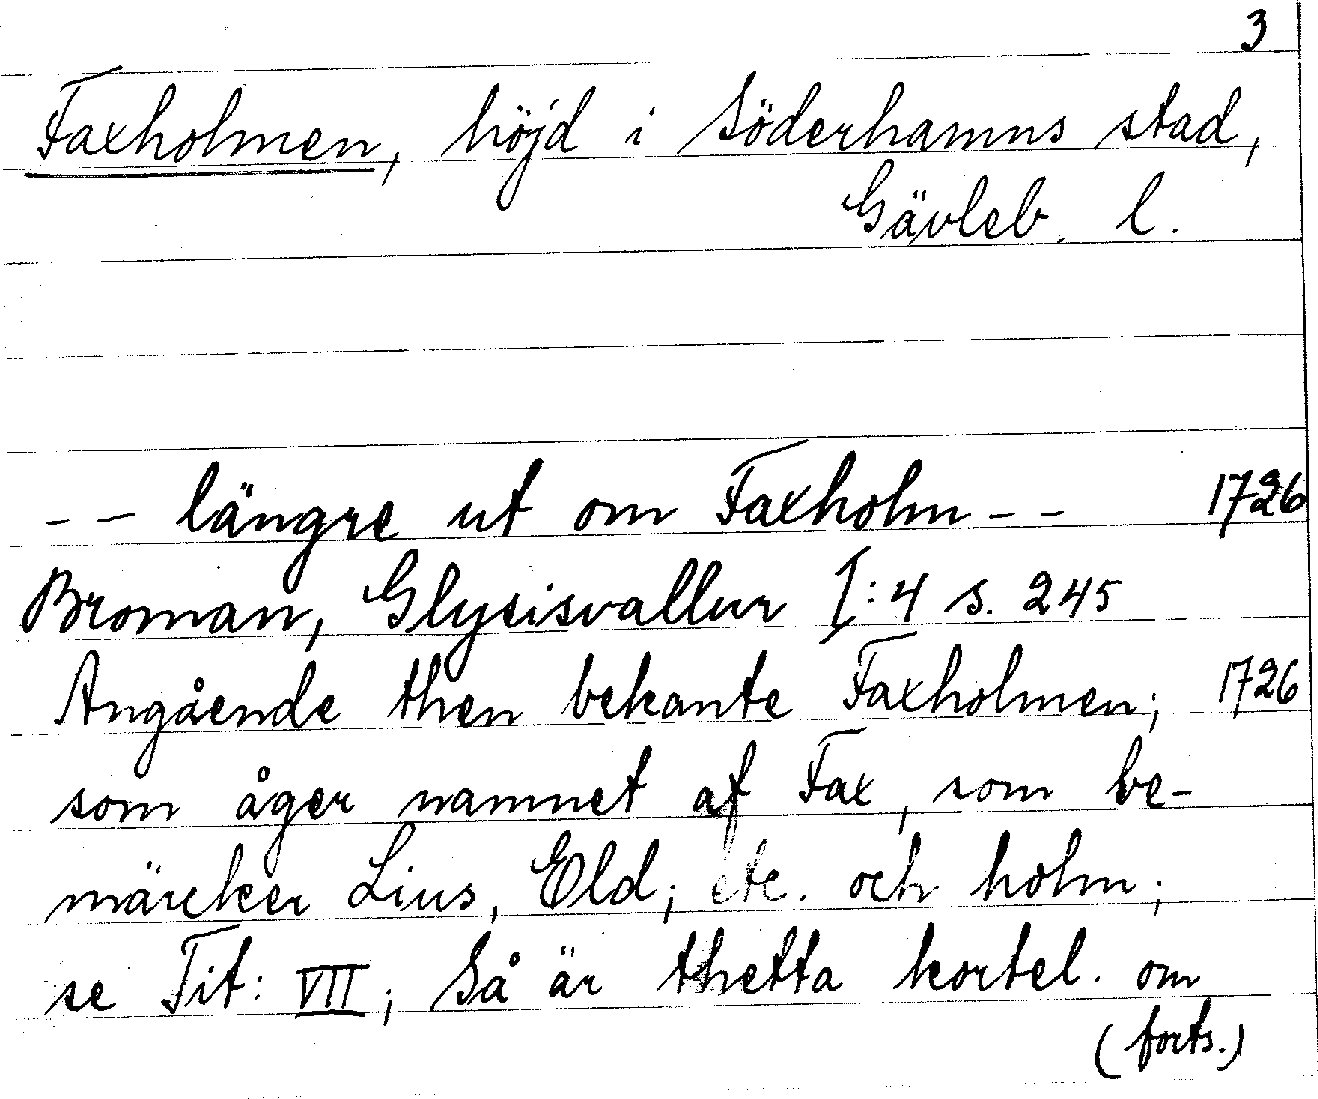 3
Faxholmen, höjd i Söderhamns stad,
Gävleb. l.
– – längre ut om Faxholm – – 1726
Broman, Glysisvallur I:4 s. 245
Angående then bekante Faxholmen; 1726
som åger namnet af Fax, som be-
märcker Lius, Eld; etc. och holm;
se Tit: VII; Så är thetta kortel. om
(forts.)